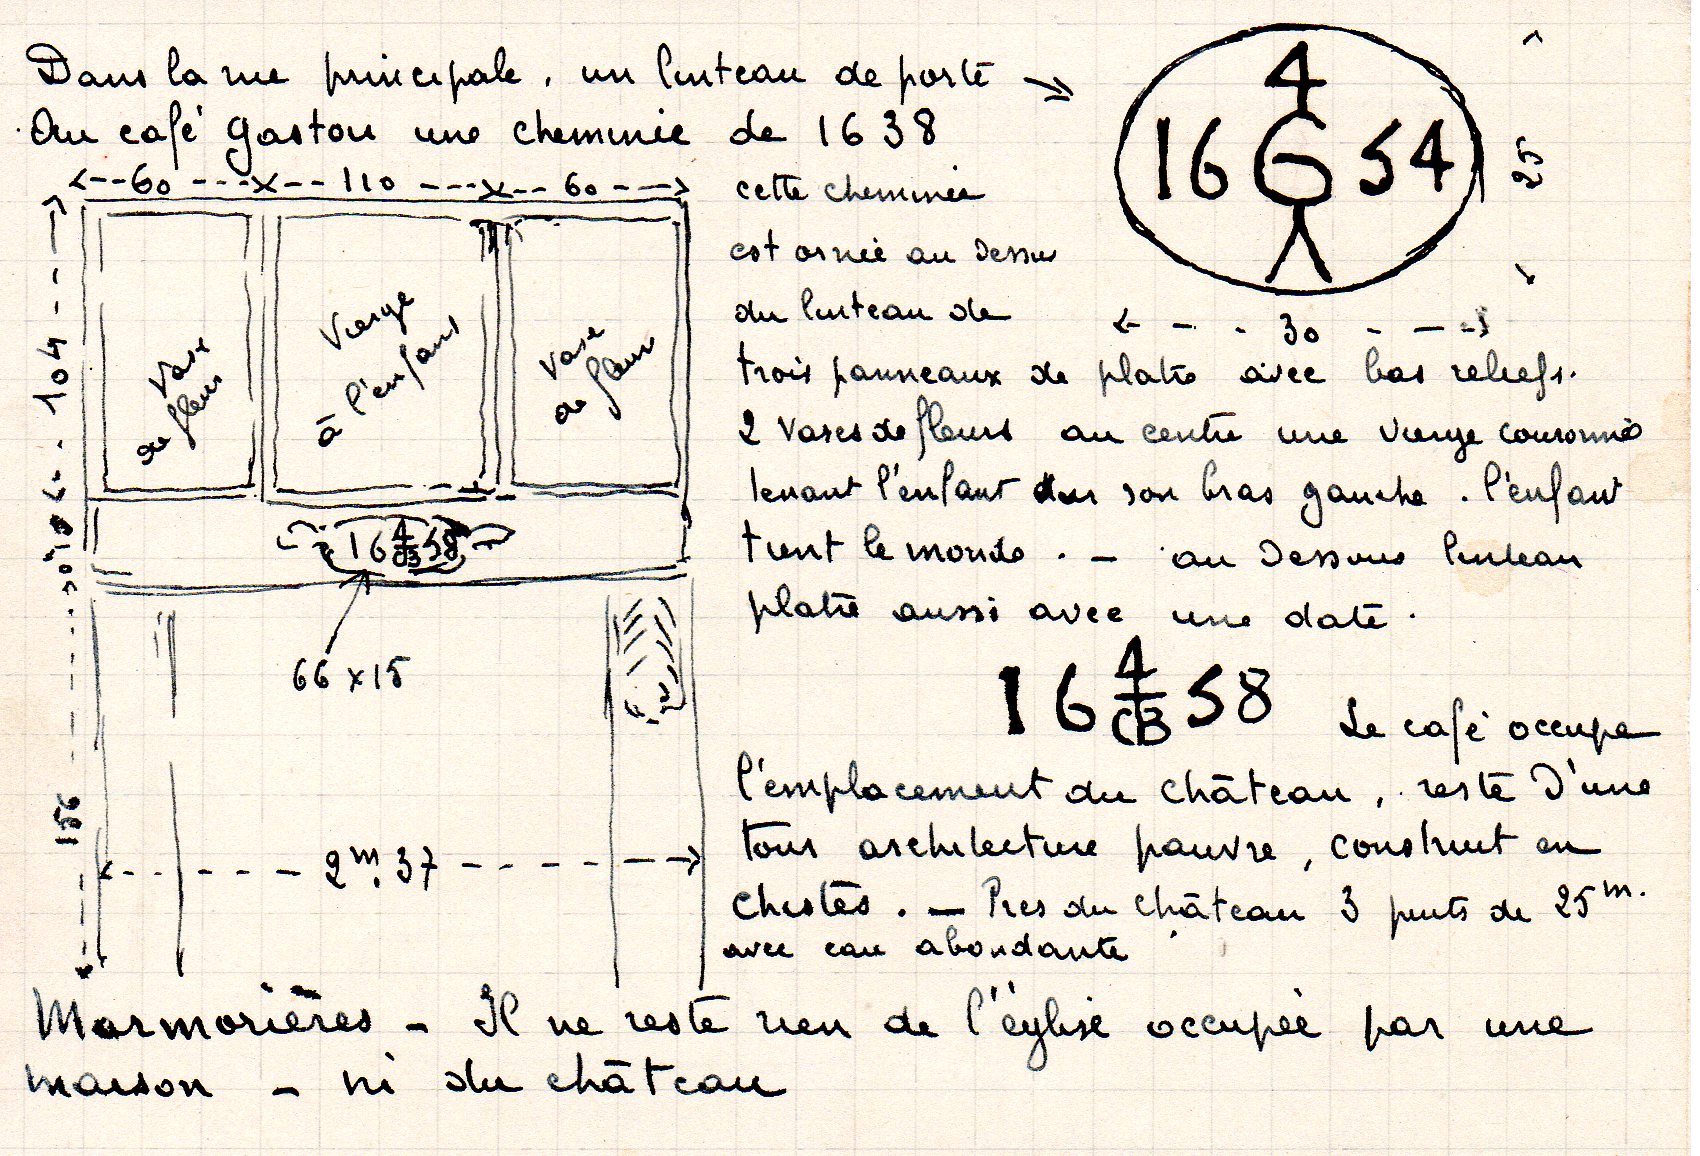 Dans la rue principale, un linteau de porte →
Au café Gaston une cheminée de 1638
4
16 G 54
25
30
60 110 60
104
Vase de fleurs
Vierge à l'enfant
Vase de fleurs
16 4 CB 58
66 x 15
156
2m.37
cette cheminée
est ornée au dessus
du linteau de
trois panneaux de platre avec bas reliefs.
2 vases de fleurs au centre une vierge couronnée
tenant l'enfant sur son bras gauche. l'enfant
tient le monde. — au dessous linteau
platre aussi avec une date.
16 4 CB 58
Le café occupe
l'emplacement du château, reste d'une
tour architecture pauvre, construit en
. — Pres du château 3 puits de 25m.
avec eau abondante
Marmorières - Il ne reste rien de l'église occupée par une
maison - ni du château